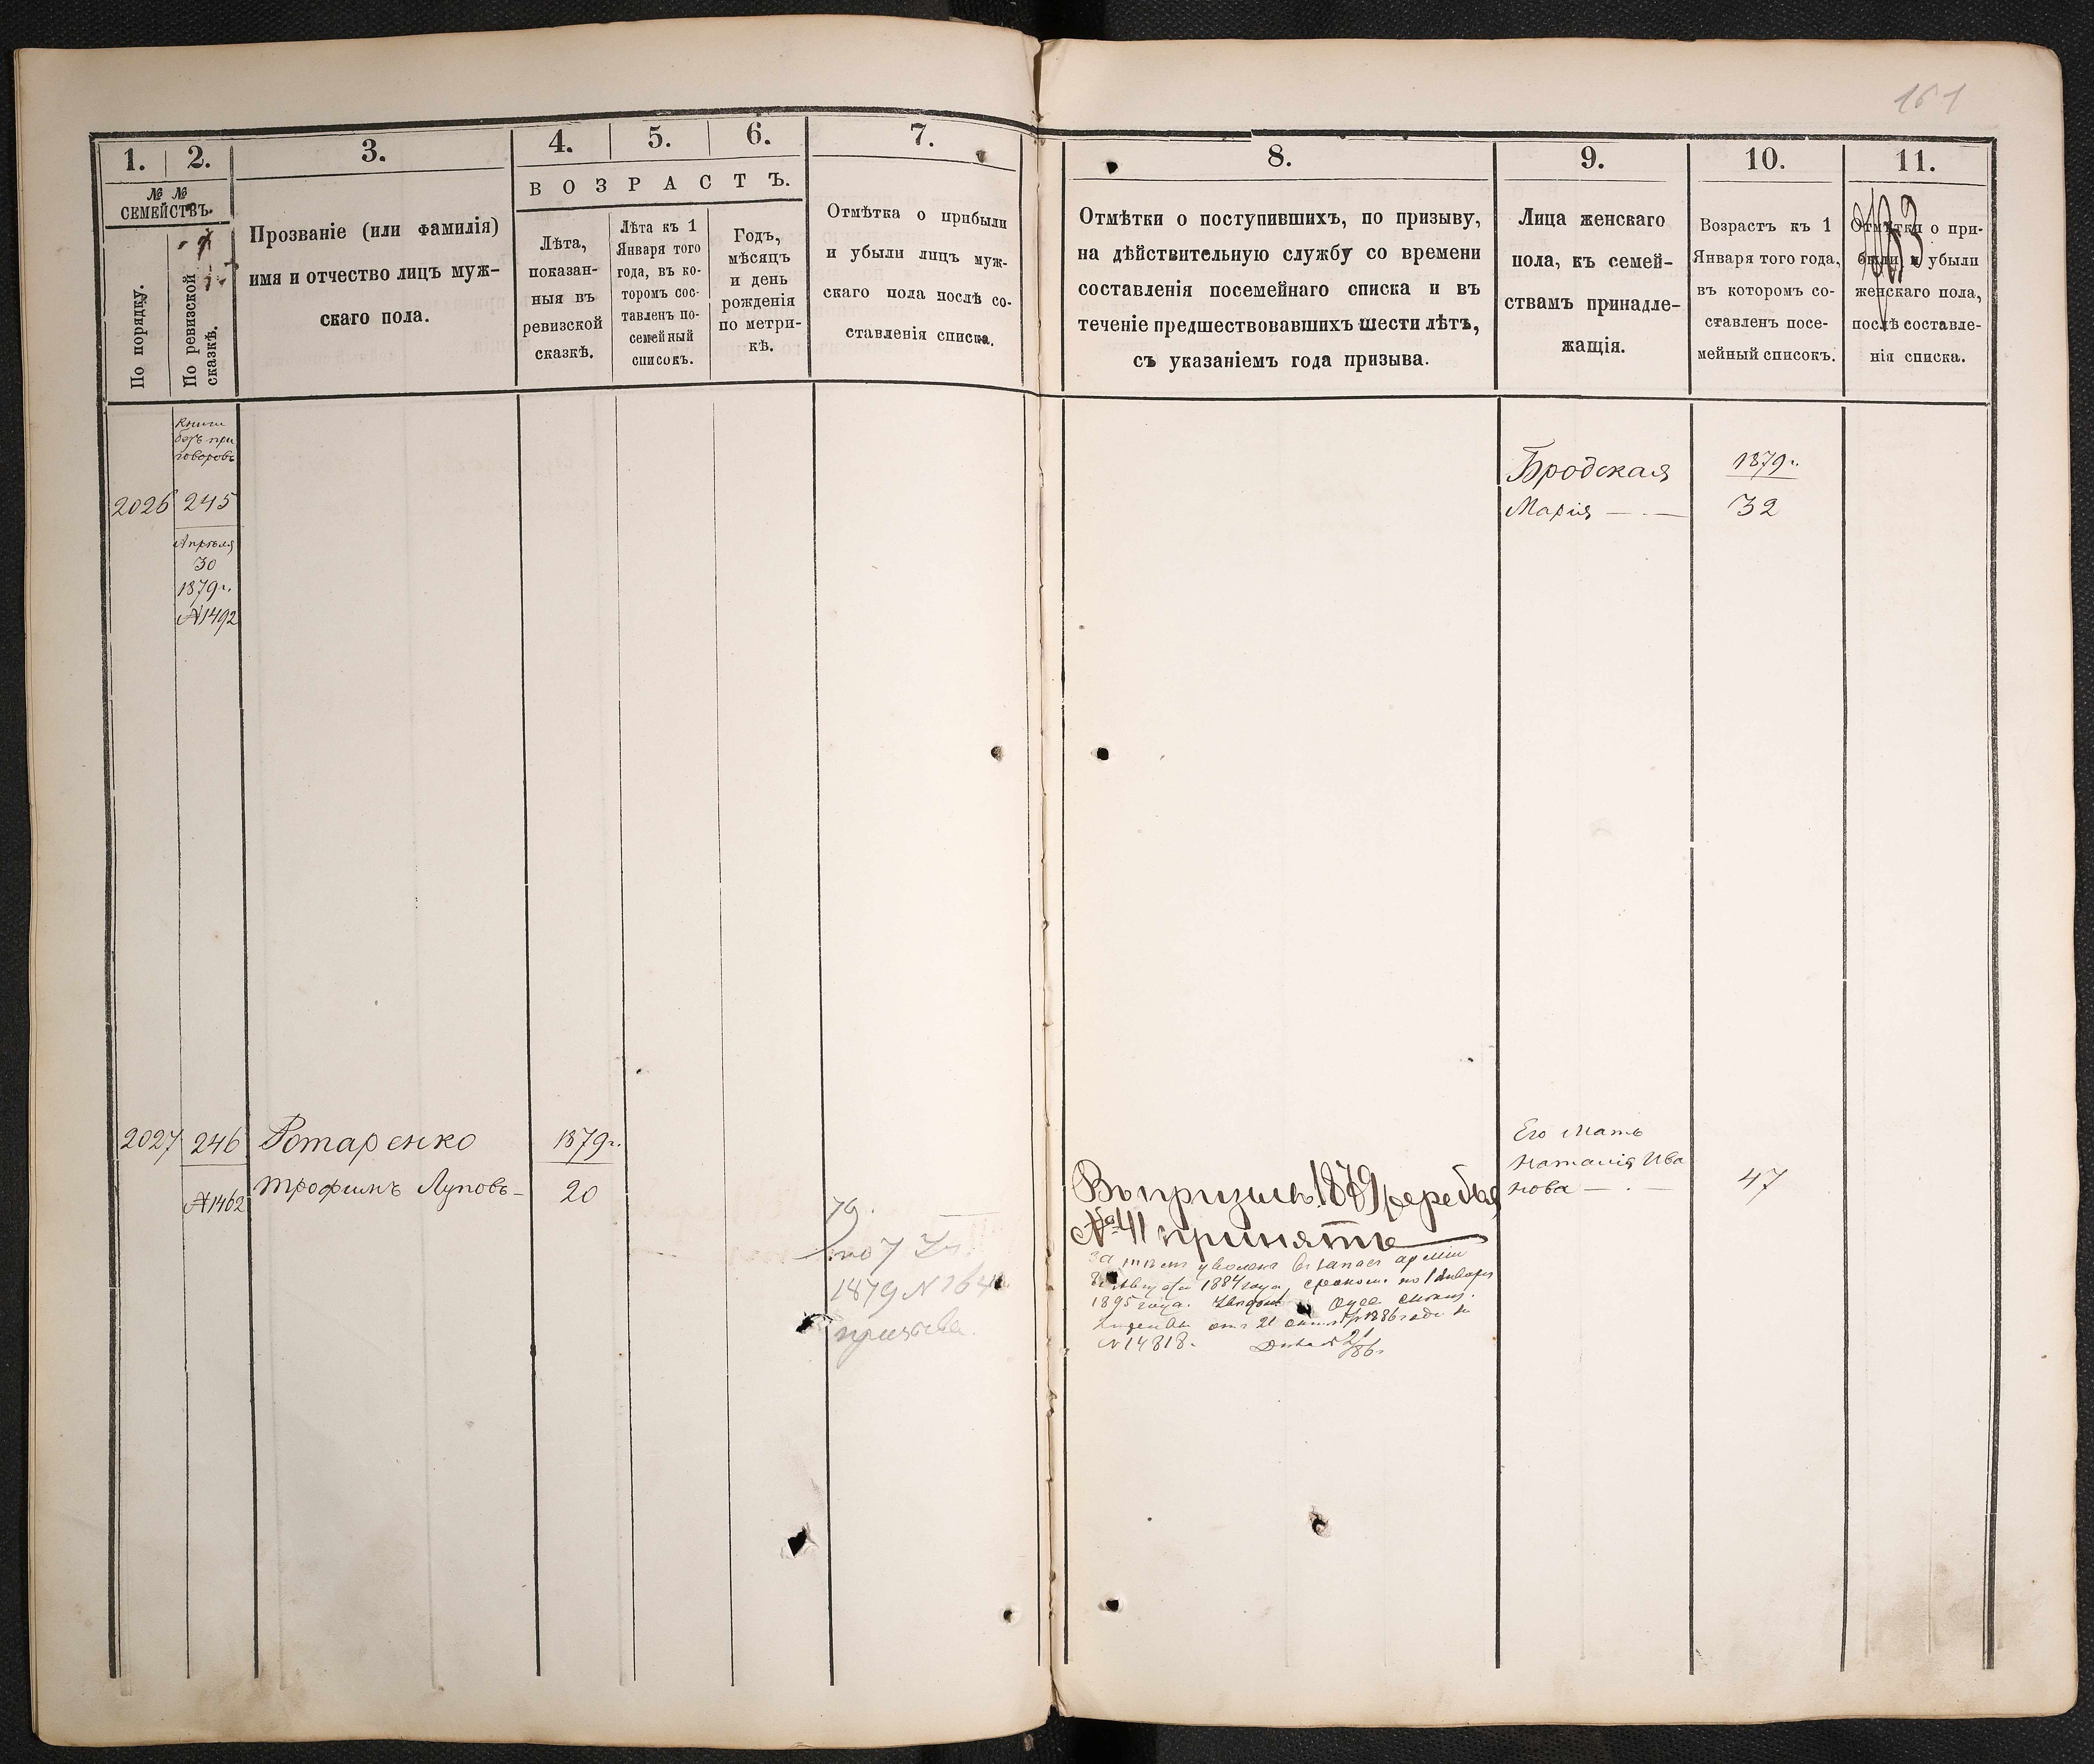 161
1. 2. 3. 4. 5. 6. 7.
№ №
СЕМЕЙСТВЪ.
По порядку.
По ревизской
сказкѣ.
Прозваніе (или фамилія)
имя и отчество лицъ муж-
скаго пола.
ВОЗРАСТЪ.
Лѣта,
показан-
ныя въ
ревизской
сказкѣ.
Лѣта къ 1
Января того
года, въ ко-
торомъ сос-
тавленъ по-
семейный
списокъ.
Годъ,
мѣсяцъ
и день
рожденія
по метри-
кѣ.
Отмѣтка о прибыли
и убыли лицъ муж-
скаго пола послѣ со-
ставленія списка.
8. 9. 10. 11.
Отмѣтки о поступившихъ, по призыву,
на дѣйствительную службу со времени
составленія посемейнаго списка и въ
теченіе предшествовавшихъ шести лѣтъ,
съ указаніемъ года призыва.
Лица женскаго
пола, къ семей-
ствамъ принадле-
жащія.
Возрастъ къ 1
Января того года,
въ которомъ со-
ставленъ посе-
мейный списокъ.
Отмѣтки о при-
были и убыли
женскаго пола,
послѣ составле-
нія списка.
Книги
безъ при
говоровъ
2026 245
Апрѣля
30
1879 г.
№1492
Бродская
Марія
1879 г.
32
2027 246 Ротаренко 1879 г.
№1462 Трофимъ Луповъ 20
79.
по 7
1879 N
призыва
Въ призывъ 1879 жеребья
№ 41 принятъ
уволенъ въ запас арміи
Августа 1884 года, срокомъ по 1 Января
1895 года.
от 21 1886 года за
N 14818.
Его Мать
Наталія Ива
нова
47